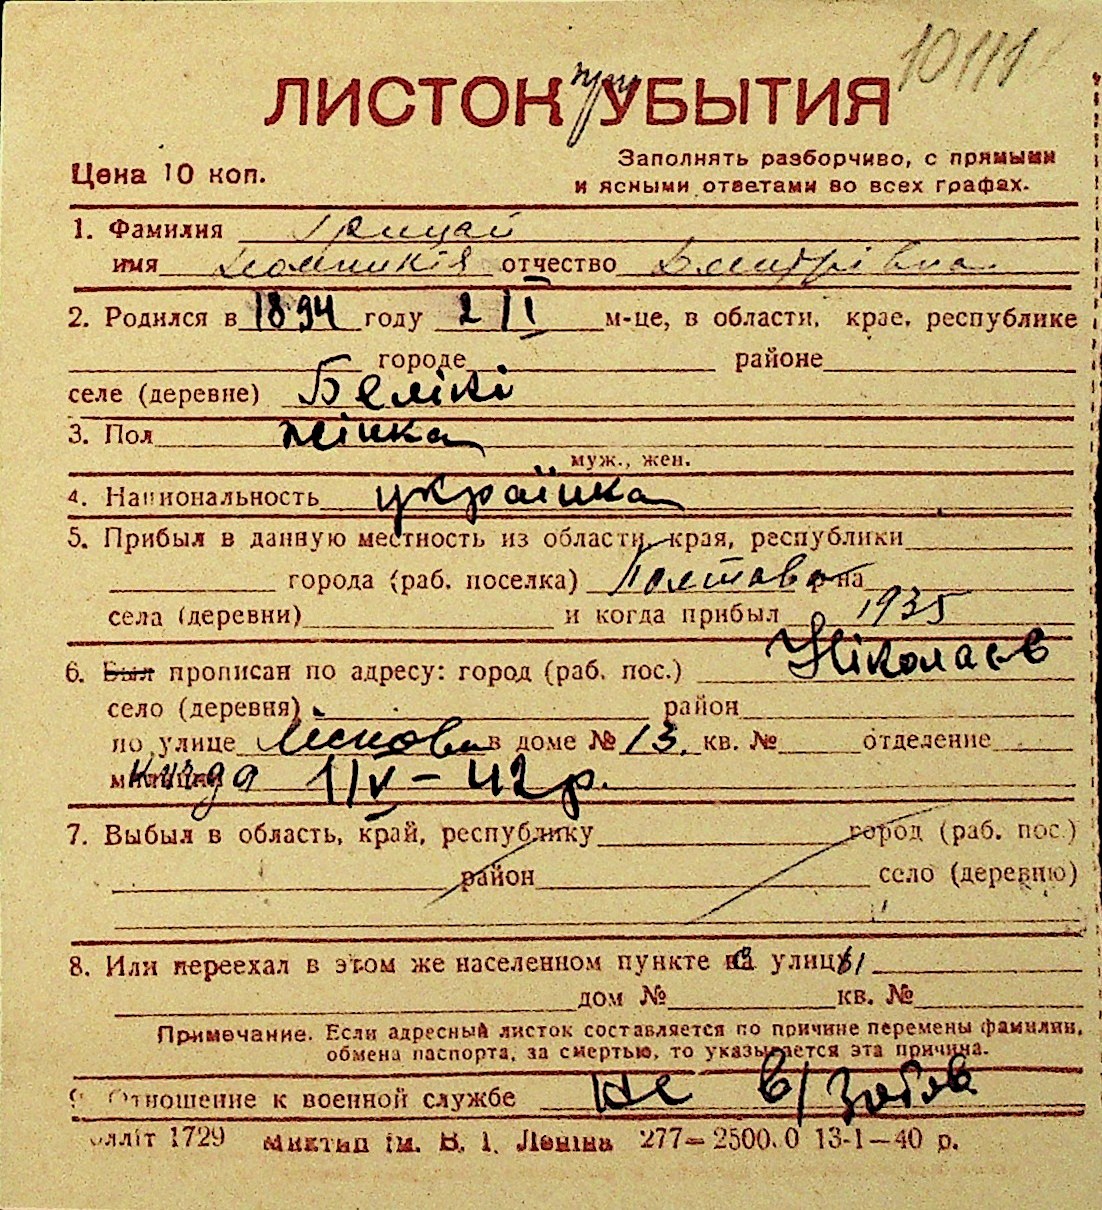 10111
ЛИСТОК при УБЫТИЯ
Цена 10 коп.
Заполнять разборчиво, с прямыми
и ясными ответами во всех графах.
1. Фамилия Грицай
имя Домникія отчество Дмитрівна
2. Родился в 1894 году 2/I м-це, в области, крае, республике
городе районе
селе (деревне) Белікі
3. Пол жінка
муж., жен.
4. Национальность українка
5. Прибыл в данную местность из области, края, республики
города (раб. поселка) Полтава она
села (деревни) и когда прибыл 1935
6. Был прописан по адресу: город (раб. пос.) Ніколаєв
село (деревня) район
по улице Ліскова в доме № 13. кв. № отделение
милиции куда 1/IV – 42 р.
7. Выбыл в область, край, республику город (раб. пос.)
район село (деревню)
8. Или переехал в этом же населенном пункте с улицы
дом № кв. №
Примечание. Если адресный листок составляется по причине перемены фамилии,
обмена паспорта, за смертью, то указывается эта причина.
9. Отношение к военной службе не в/зобов
оллiт 1729 Миктип ім. В. І. Леніна 277–2500.0 13-1–40 р.